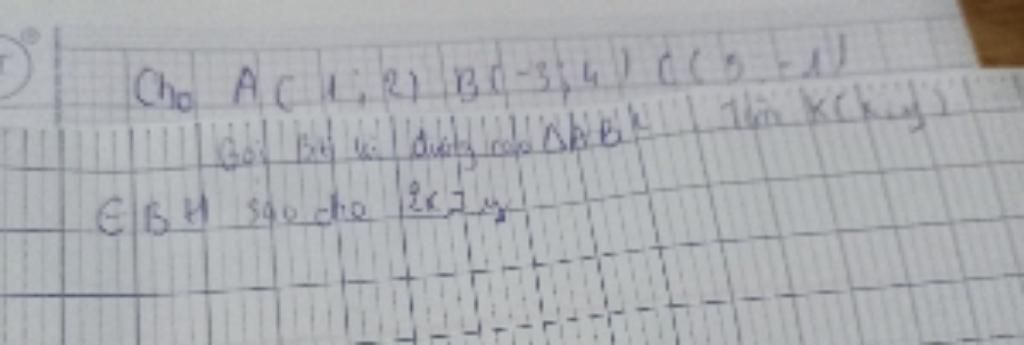 Cho A( 1 ; 2) B(-3; 4) C( 5 -1)
Gọi BH là đường cao Tìm K(x,y)
∈ BH sao cho